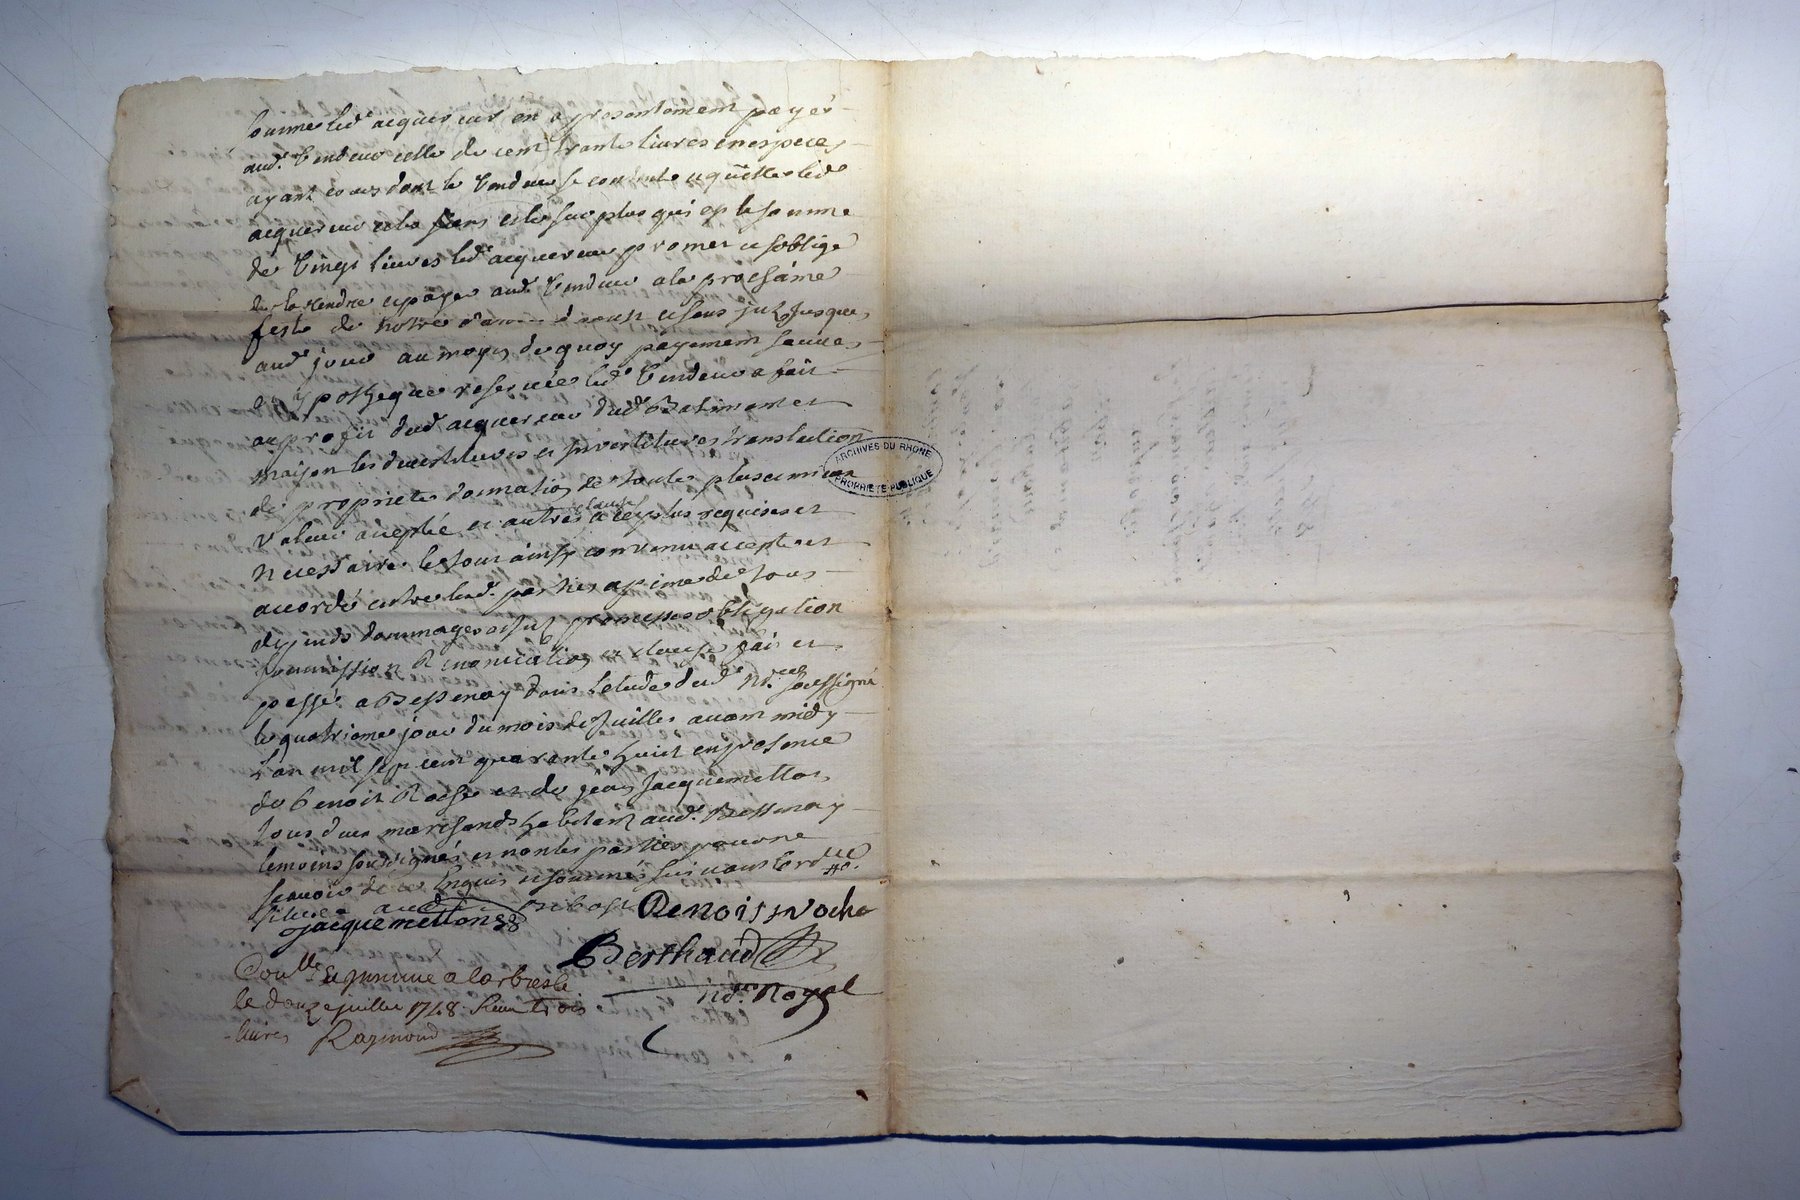 somme led. acquereur en a presentement payé
aud. Vendeur celle de cent trante livres en especes
ayant cours dont le Vendeur se contente
acquereur et le surplus qui est la somme
de Vingt livres led. acquereur promet et soblige
de la rendre et payer aud. Vendeur a la prochaine
feste de notre dame d'aoust et sans jusques
aud. jour au moyen de quoy payement sauver
et ypotheque reservée led. Vendeur a fait
au profit dud. acquereur dud. Batiment et
maison les devestitures et investitures translation
de proprieté donnation de toutes plus et mieux
value acceptée et autres clauses a ce plus requises et
necessaire le tout ainsy convenu accepté et
accordé entre les d. parties a peine de tous
depends dommages promesses obligation
soumission Renonciation et clauses fait et
passé a Bessenay dans l'etude dud. no.re soussigné
le quatrieme jour du mois de Juillet avant midy
L'an mil sept cent quarante huit en presence
de benoit Roche et de jean Jacquemetton
tous deux marchands habitant aud. Bessenay
temoins soussignés et non les parties pour ne
scavoir de ce Enquis et sommés suivant lord.ce
Jacquemetton Benoist Roche
Berthaud
nd.re Royal
Conllé et insinué a larbresle
le douze juillet 1748. Recu trois
livres Raymond
ARCHIVES DU RHONE
PROPRIETE PUBLIQUE